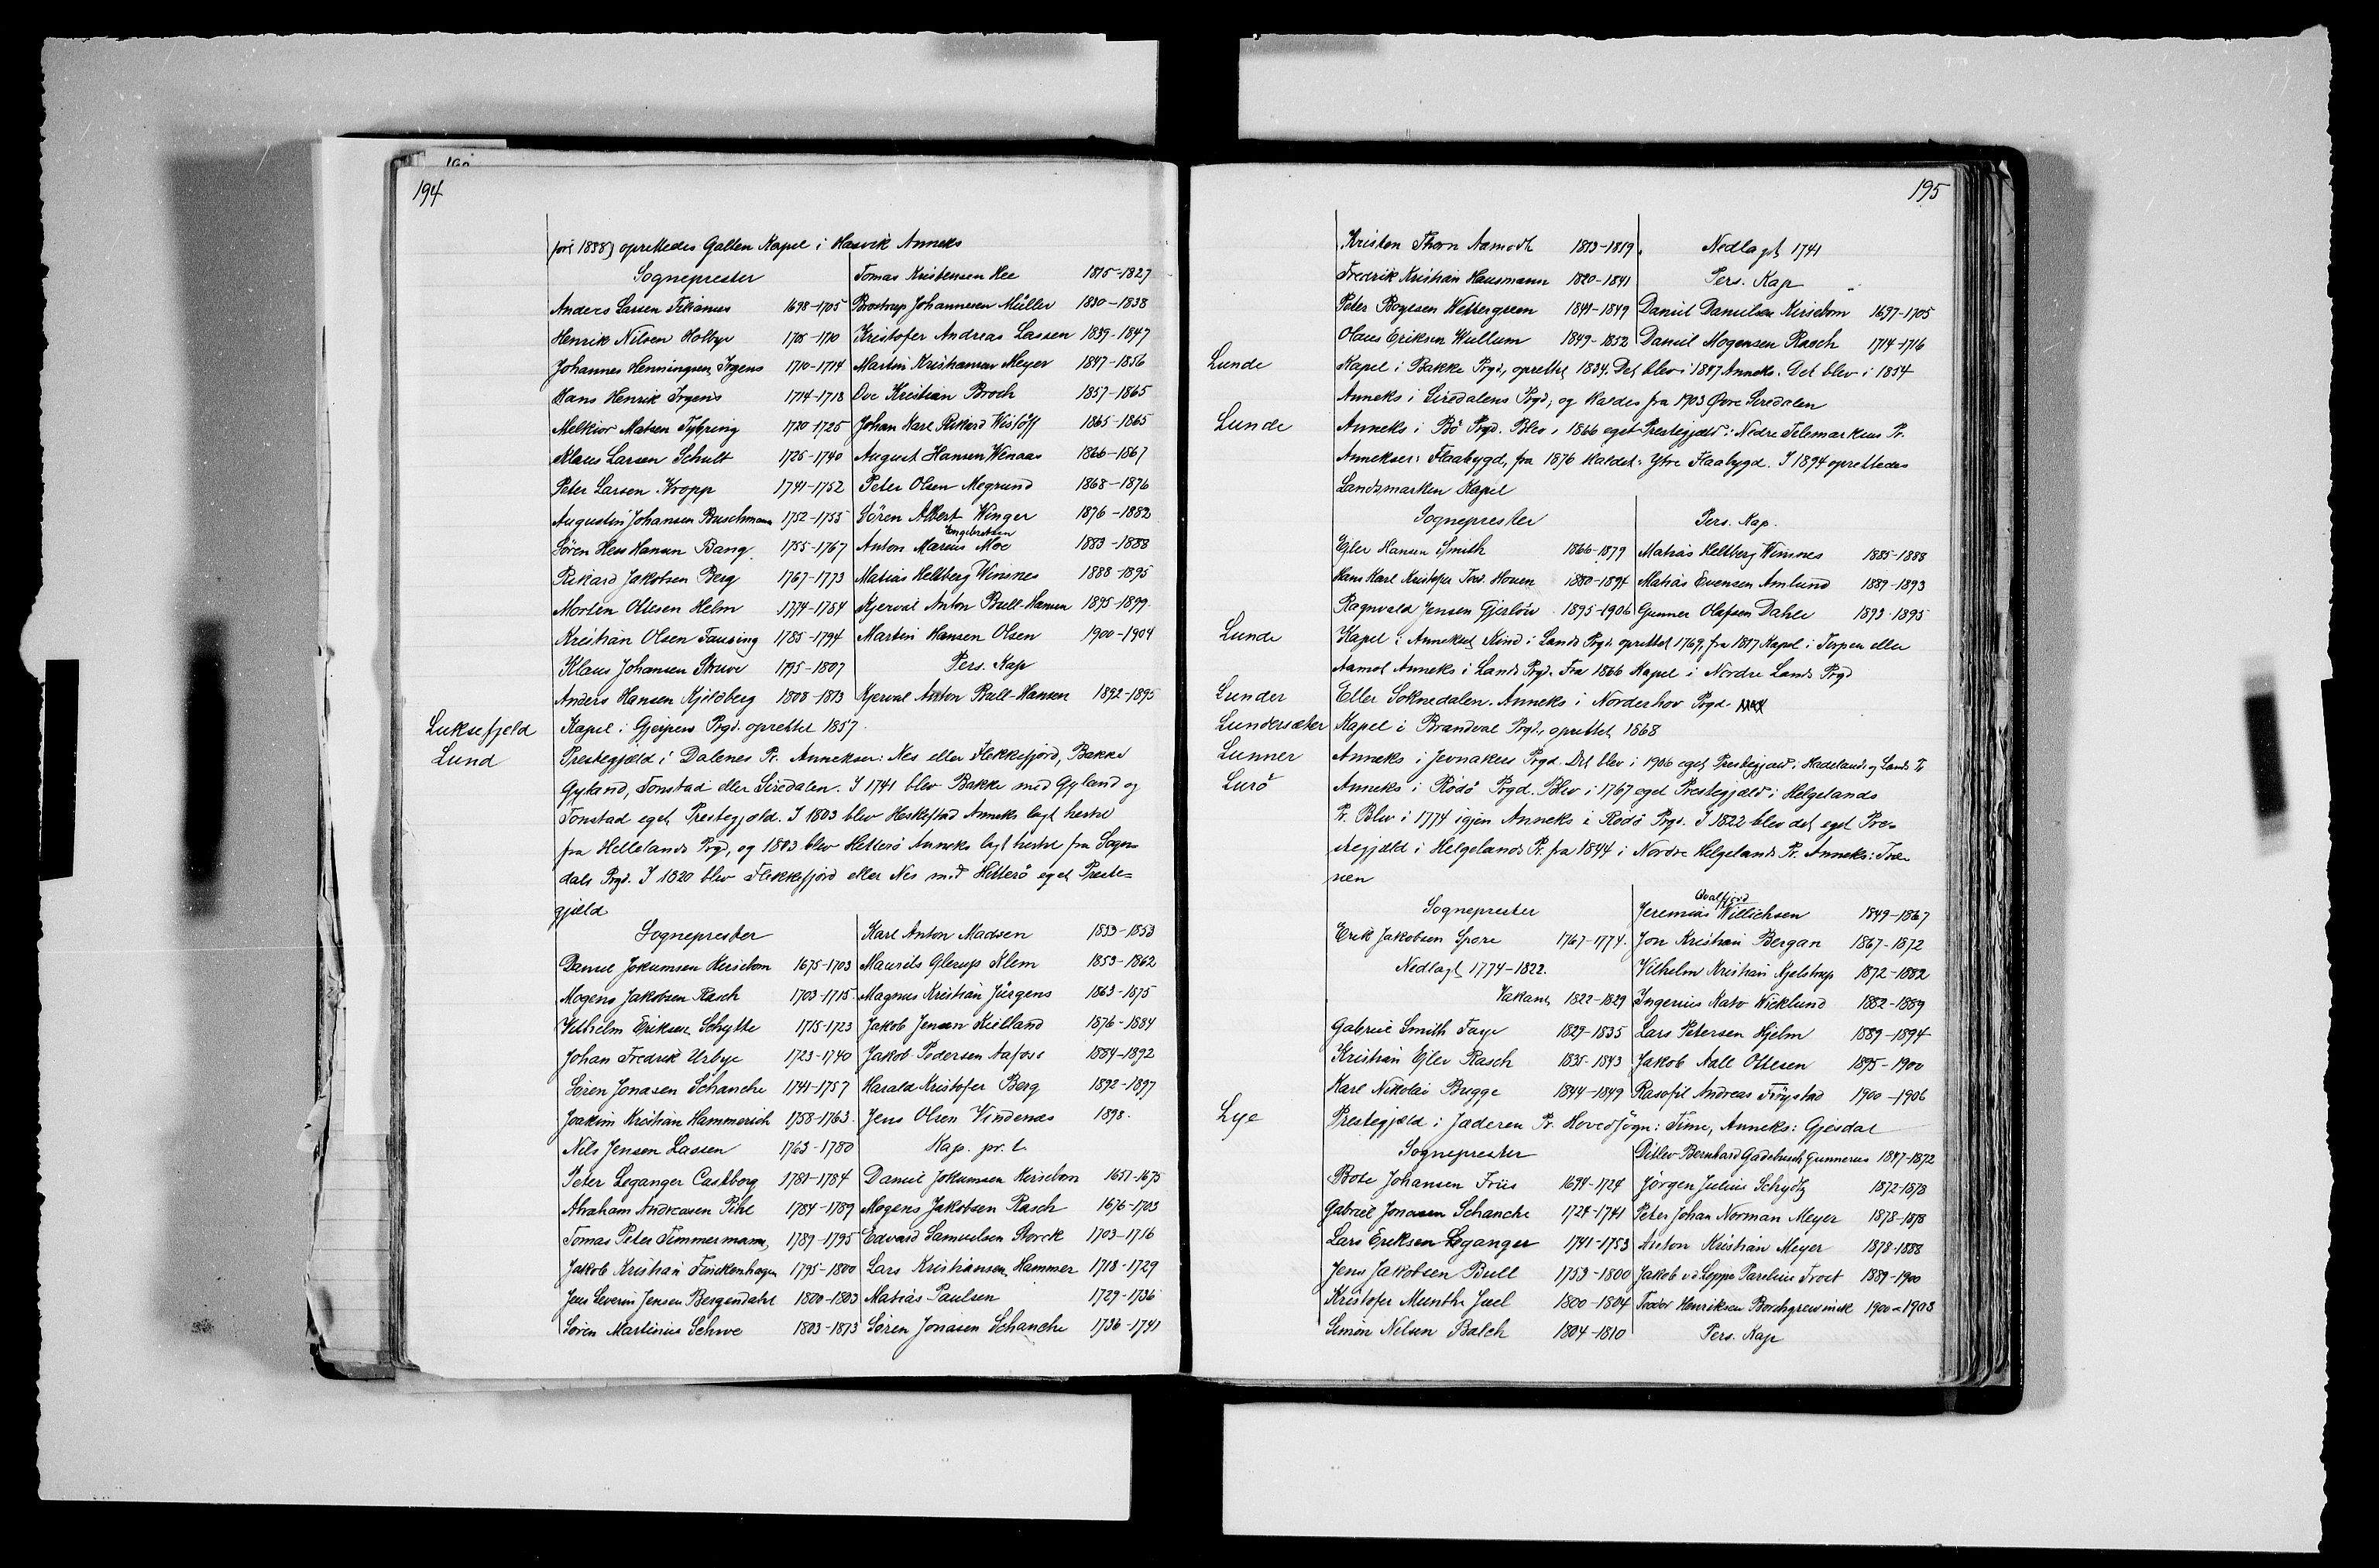 194
1838) oprettedes Galten Kapel i Hasvik Anneks
Sogneprester
Anders Larsen Fikianus 1698-1705
Henrik Nilsen Holbye 1705-1710
Johannes Henningsen Irgens 1710-1714
Hans Henrik Irgens 1714-1718
Melkior Matsen Tybring 1720-1725
Klaus Larsen Schult 1725-1740
Peter Larsen Kropp 1741-1752
Augustin Johansen Buschmann 1752-1755
Søren Hess Hansen Bang 1755-1767
Rikard Jakobsen Berg 1767-1773
Morten Ottesen Helm 1774-1784
Kristian Olsen Fausing 1785-1794
Klaus Johansen Struve 1795-1807
Anders Hansen Kjeldberg 1808-1813
Tomas Kristensen Hee 1815-1827
Brostrup Johannesen Müller 1830-1838
Kristofer Andreas Lassen 1839-1847
Martin Kristiansen Meyer 1847-1856
Ove Kristian Broch 1857-1865
Johan Karl Rikard Wisløff 1865-1865
August Hansen Wenaas 1866-1867
Peter Olsen Megrund 1868-1876
Søren Albert Winger 1876-1882
Engebretsen
Anton Marius Moe 1883-1888
Matias Heltberg Wimnes 1888-1895
Kjerval Anton Bull-Hansen 1895-1899
Martin Hansen Olsen 1900-1904
Pers. Kap
Kjerval Anton Bull-Hansen 1892-1895
Luksefjeld Kapel i Gjerpens Prgd. oprettet 1857
Lund Prestegjæld i Dalenes Pr. Annekser: Nes eller Flekkefjord, Bakke
Gyland, Tonstad eller Siredalen. I 1741 blev Bakke med Gyland og
Tonstad eget Prestegjæld. I 1803 blev Heskestad Anneks lagt herti
fra Hellelands Prgd, og 1803 blev Hetterö Anneks lagt hertil fra Sogn-
dals Prgd. I 1820 blev Flekkefjord eller Nes med Hetterö eget Preste=
gjæld
Sogneprester
Daniel Jokumsen Kersebom 1675-1703
Mogens Jakobsen Rasch 1703-1715
Vilhelm Eriksen Schytte 1715-1723
Johan Fredrik Urbye 1723-1740
Søren Jonasen Schanche 1741-1757
Joakim Kristian Hammerich 1758-1763
Nils Jensen Lassen 1763-1780
Peter Leganger Castberg 1781-1784
Abraham Andreasen Pihl 1784-1789
Tomas Peter Timmermann 1789-1795
Jakob Kristian Finckenhagen 1795-1800
Jens Severin Jensen Bergendahl 1800-1803
Søren Martinius Schwe 1803-1813
Karl Anton Madsen 1833-1853
Maurits Glerup Klem 1853-1862
Magnus Kristian Jürgens 1863-1875
Jakob Jensen Kielland 1876-1884
Jakob Pedersen Aafoss 1884-1892
Harald Kristofer Berg 1892-1897
Jens Olsen Vindenes 1898.
Kap. pr. l.
Daniel Jokumsen Kersebom 1657-1675
Mogens Jakobsen Rasch 1676-1703
Edvard Samuelsen Storck 1703-1716
Lars Kristiansen Hammer 1718-1729
Matias Paulsen 1729-1736
Søren Jonasen Schanche 1736-1741
195
Kristen Thorn Aamodt 1813-1819.
Fredrik Kristian Hausmann 1820-1841
Peter Boyesen Wettergreen 1841-1849
Olaus Eriksen Wullum 1849-1852
Nedlagt 1741
Pers. Kap
Daniel Danielsen Kersebom 1697-1705
Daniel Mogensen Rasch 1714-1716
Lunde Kapel i Bakke Prgd, oprettet 1834. Det blev i 1847 Anneks. Det blev i 1854
Anneks i Siredalens Prgd, og kaldes fra 1903 Øvre Siredalen
Lunde Anneks i Bö Prgd. Blev i 1866 eget Prestegjæld i Nedre Telemarkens Pr.
Annekser: Flaabygd, fra 1876 kaldet: Ytre Flaabygd. I 1894 oprettedes
Landsmarken Kapel
Sogneprester
Ejler Hansen Smith 1866-1879
Hans Karl Kristofer Tord. Hoven 1880-1894
Ragnvald Jensen Gjerløw 1895-1906
Pers. Kap.
Matias Heltberg Wimnes 1885-1888
Matias Evensen Amlund 1889-1893
Gunnar Olafsen Dahle 1893-1895
Lunde Kapel i Annekset Kind i Lands Prgd. oprettet 1769, fra 1817 Kapel i Torpen eller
Aamot Anneks i Lands Prgd. Fra 1866 Kapel i Nordre Lands Prgd
Lunder Eller Soknedalen. Anneks i Norderhov Prgd.
Lundersæter Kapel i Brandval Prgd, oprettet 1868
Lunner Anneks i Jevnakers Prgd. Det blev i 1906 eget Prestegjæld i Hadeland og Lands Pr
Lurö Anneks i Rödö Prgd. Blev i 1767 eget Prestegjæld i Helgelands
Pr. Blev i 1774 igjen Anneks i Rödö Prgd. I 1822 blev det eget Pre-
stegjæld i Helgelands Pr. fra 1844 i Nordre Helgelands Pr. Anneks: Træ-
nen
Sogneprester
Erik Jakobsen Spore 1767-1774.
Nedlagt 1774-1822.
Vakant 1822-1829
Gabriel Smith Faye 1829-1835
Kristian Ejler Rasch 1835-1843
Karl Nikolai Bugge 1844-1849
Qvalfjord
Jeremias Willichsen 1849-1867
Jon Kristian Bergan 1867-1872
Vilhelm Kristian Kjelstrup 1872-1882
Ingenius Kato Wicklund 1882-1889
Lars Petersen Hjelm 1889-1894
Jakob Aall Ottesen 1895-1900
Rasofil Andreas Fröystad 1900-1906
Lye Prestegjæld i Jæderen Pr. Hovedsogn: Time, Anneks: Gjesdal
Sogneprester
Bote Johansen Friis 1694-1724
Gabriel Jonasen Schanche 1724-1741
Lars Eriksen Leganger 1741-1753
Jens Jakobsen Bull 1753-1800
Kristofer Munthe Juel 1800-1804
Simon Nilsen Balch 1804-1810
Ditlev Bernhard Gadebusch Gunnerus 1847-1872
Jörgen Julius Schydtz 1872-1878
Peter Johan Norman Meyer 1878-1878
Anton Kristian Meyer 1878-1888
Jakob v.d. Lippe Parelius Frost 1889-1900
Trodor Henriksen Borchgrewinck 1900-1903
Pers. Kap